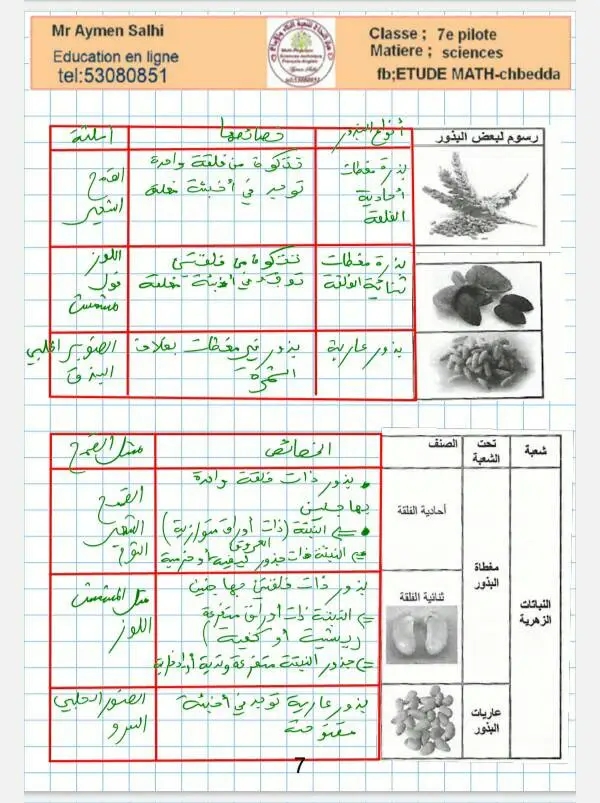 Mr Aymen Salhi
Education en ligne
tel:53080851
Classe ; 7e pilote
Matiere ; sciences
fb;ETUDE MATH-chbedda
رسوم لبعض البذور
أنواع البذور
خصائصها
أمثلة
بذرة مغطات
أحادية
الفلقة
تتكون من فلقة واحدة
توجد في أخبئة مغلقة
القمح
الشعير
بذرة مغطات
ثنائية الفلقة
تتكون من فلقتين
توجد في أخبئة مغلقة
اللوز
فول
مشمش
بذور عارية
بذور غير مغطات بغلاف
الثمرة
الصنوبر الحلبي
البندق
شعبة
تحت
الشعبة
الصنف
الخصائص
مثل القمح
النباتات
الزهرية
مغطاة
البذور
أحادية الفلقة
بذور ذات فلقة واحدة
بها جنين
النبتة (ذات أوراق متوازية)
العروق
النبتة ذات جذور ليفية أو حزمية
القمح
الشعير
ثنائية الفلقة
بذور ذات فلقتين بها جنين
النبتة ذات أوراق متفرعة
ريشية أو كفية)
جذور النبتة متفرعة وتدية أو
مثل المشمش
اللوز
عاريات
البذور
بذور عارية توجد في أخبئة
مفتوحة
الصنوبر الحلبي
السرو
7